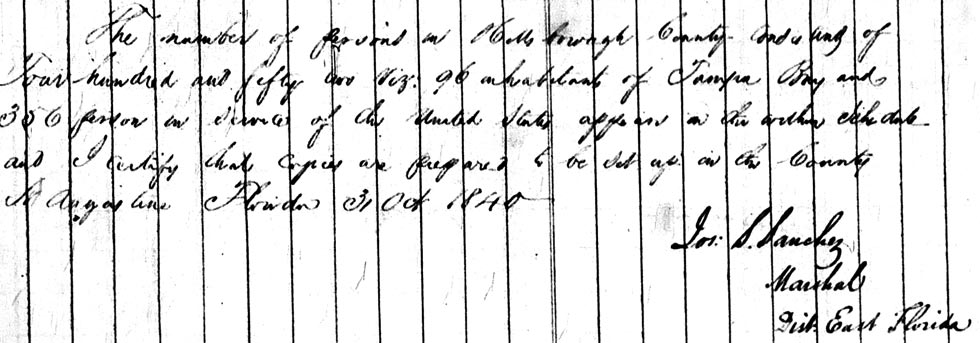 The number of persons in Hillsborough County consisting of
Four hundred and fifty two viz. 96 inhabitants of Tampa Bay and
356 person in service of the United States appears in the within Schedule
and I certify that copies are prepared to be set up in the County
St Augustine Florida 31 Oct 1840
Jos: S. Sanchez
Marshal
Dist. East Florida